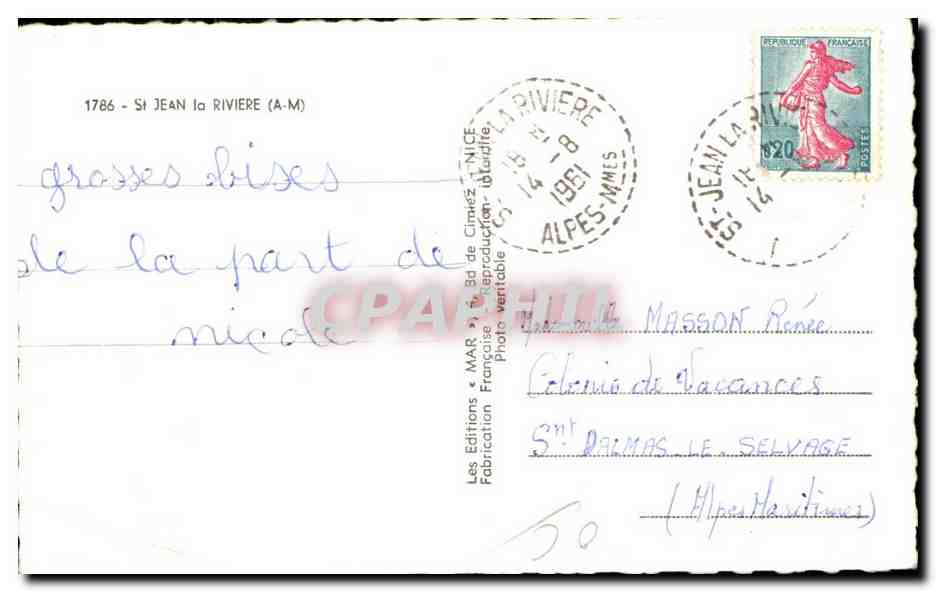 1786 - St JEAN la RIVIERE (A-M)
grosses bises
de la part de
nicole
Les Editions « MAR », Bd de Cimiez NICE
Fabrication Française Reproduction interdite
Photo veritable
LA RIVIERE
18
14 -8
1961
ALPES-MMES
ST-JEAN LA RIVI
18
14
REPUBLIQUE FRANÇAISE
0,20
POSTES
MASSON Renée
Colonie de Vacances
Snt DALMAS-LE-SELVAGE
(Alpes Maritimes)
50
CPAPHIL